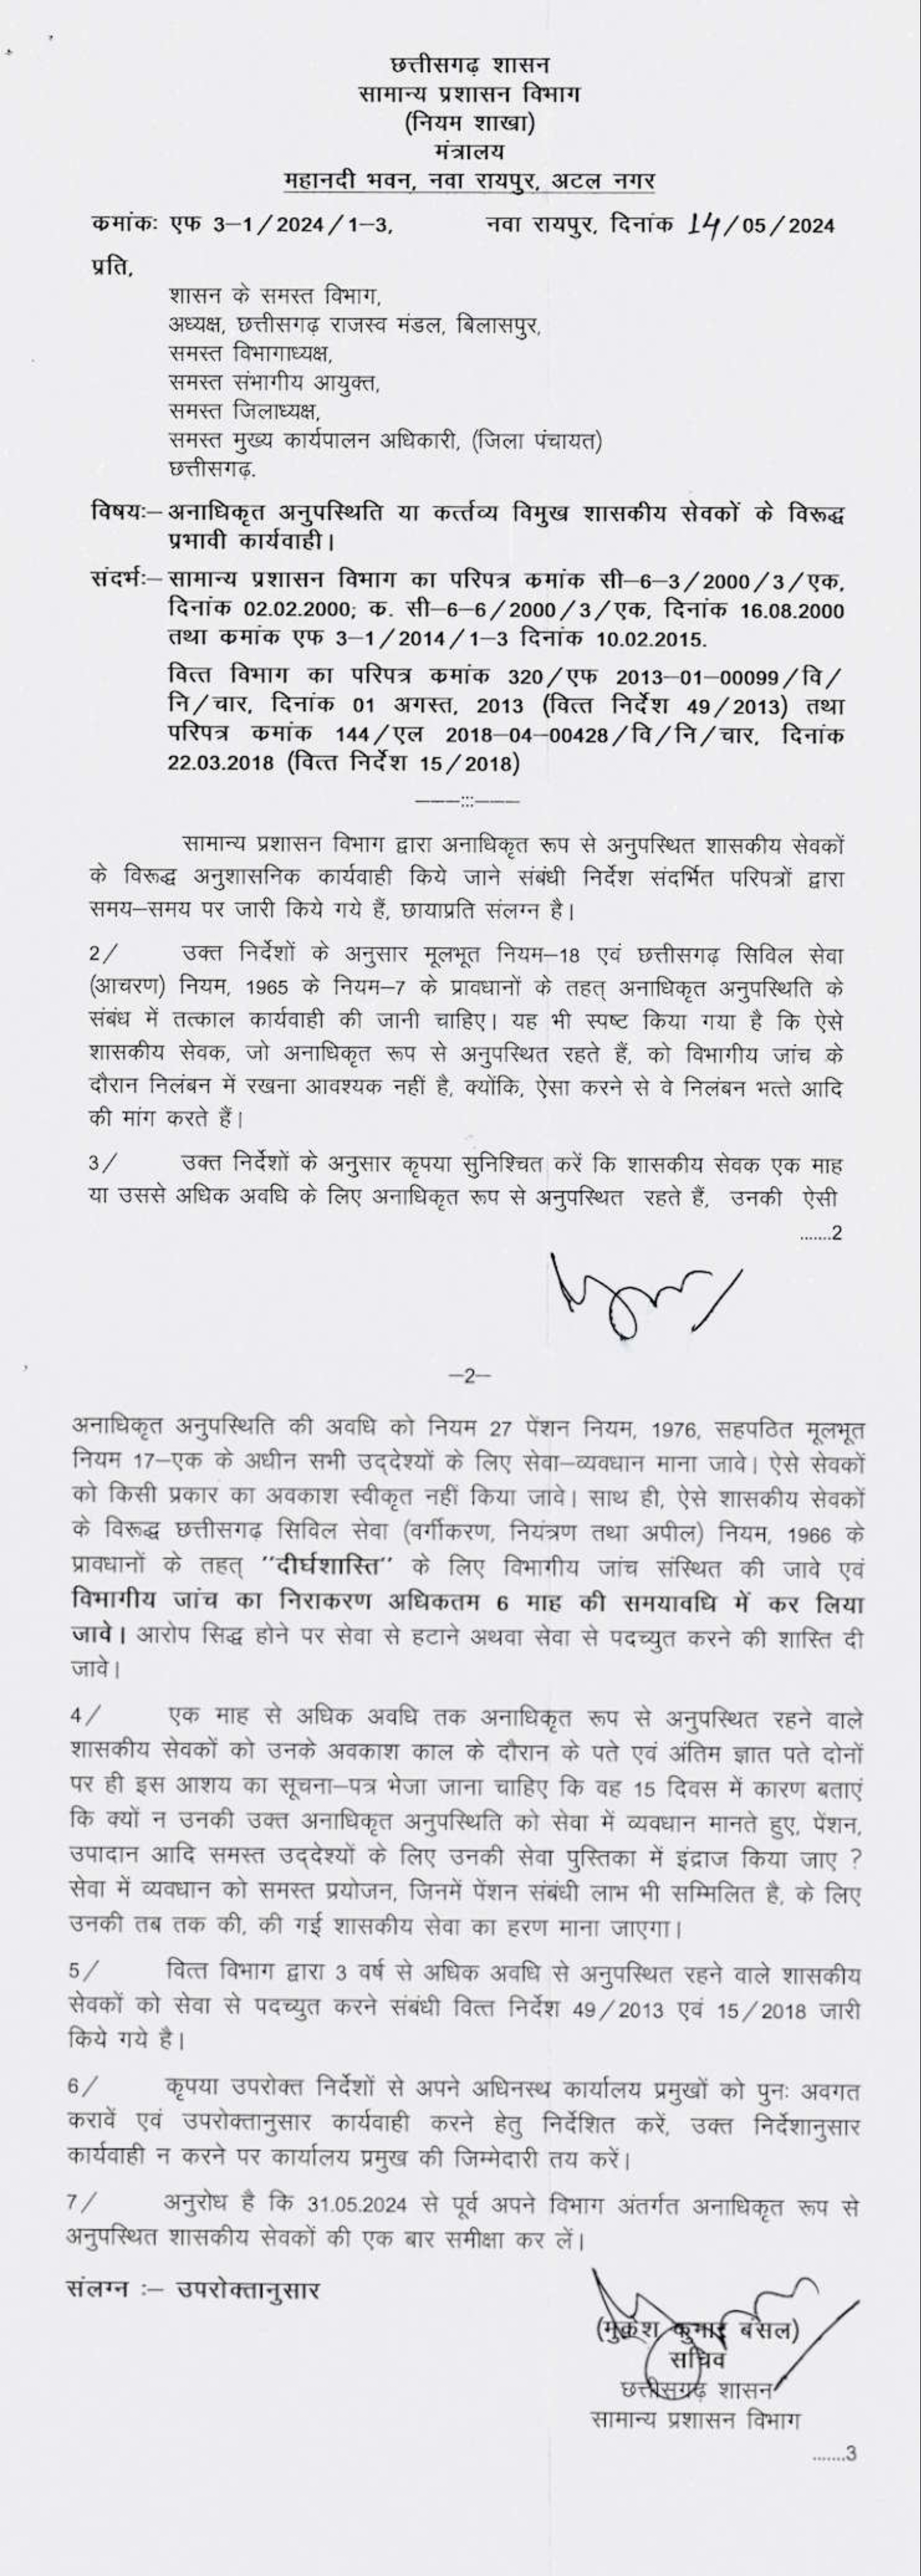 छत्तीसगढ़ शासन
सामान्य प्रशासन विभाग
(नियम शाखा)
मंत्रालय
महानदी भवन, नवा रायपुर, अटल नगर
कमांक: एफ 3–1/2024/1–3, नवा रायपुर, दिनांक 14/05/2024
प्रति,
शासन के समस्त विभाग,
अध्यक्ष, छत्तीसगढ़ राजस्व मंडल, बिलासपुर,
समस्त विभागाध्यक्ष,
समस्त संभागीय आयुक्त,
समस्त जिलाध्यक्ष,
समस्त मुख्य कार्यपालन अधिकारी, (जिला पंचायत)
छत्तीसगढ़.
विषयः– अनाधिकृत अनुपस्थिति या कर्त्तव्य विमुख शासकीय सेवकों के विरूद्ध
प्रभावी कार्यवाही।
संदर्भः– सामान्य प्रशासन विभाग का परिपत्र कमांक सी–6–3/2000/3/एक,
दिनांक 02.02.2000; क. सी–6–6/2000/3/एक, दिनांक 16.08.2000
तथा कमांक एफ 3–1/2014/1–3 दिनांक 10.02.2015.
वित्त विभाग का परिपत्र कमांक 320/एफ 2013–01–00099/वि/
नि/चार, दिनांक 01 अगस्त, 2013 (वित्त निर्देश 49/2013) तथा
परिपत्र कमांक 144/एल 2018–04–00428/वि/नि/चार, दिनांक
22.03.2018 (वित्त निर्देश 15/2018)
———:::———
सामान्य प्रशासन विभाग द्वारा अनाधिकृत रूप से अनुपस्थित शासकीय सेवकों
के विरूद्ध अनुशासनिक कार्यवाही किये जाने संबंधी निर्देश संदर्भित परिपत्रों द्वारा
समय–समय पर जारी किये गये हैं, छायाप्रति संलग्न है।
2/ उक्त निर्देशों के अनुसार मूलभूत नियम–18 एवं छत्तीसगढ़ सिविल सेवा
(आचरण) नियम, 1965 के नियम–7 के प्रावधानों के तहत् अनाधिकृत अनुपस्थिति के
संबंध में तत्काल कार्यवाही की जानी चाहिए। यह भी स्पष्ट किया गया है कि ऐसे
शासकीय सेवक, जो अनाधिकृत रूप से अनुपस्थित रहते हैं, को विभागीय जांच के
दौरान निलंबन में रखना आवश्यक नहीं है, क्योंकि, ऐसा करने से वे निलंबन भत्ते आदि
की मांग करते हैं।
3/ उक्त निर्देशों के अनुसार कृपया सुनिश्चित करें कि शासकीय सेवक एक माह
या उससे अधिक अवधि के लिए अनाधिकृत रूप से अनुपस्थित रहते हैं, उनकी ऐसी
.......2
–2–
अनाधिकृत अनुपस्थिति की अवधि को नियम 27 पेंशन नियम, 1976, सहपठित मूलभूत
नियम 17–एक के अधीन सभी उद्देश्यों के लिए सेवा–व्यवधान माना जावे। ऐसे सेवकों
को किसी प्रकार का अवकाश स्वीकृत नहीं किया जावे। साथ ही, ऐसे शासकीय सेवकों
के विरूद्ध छत्तीसगढ़ सिविल सेवा (वर्गीकरण, नियंत्रण तथा अपील) नियम, 1966 के
प्रावधानों के तहत् "दीर्घशास्ति" के लिए विभागीय जांच संस्थित की जावे एवं
विभागीय जांच का निराकरण अधिकतम 6 माह की समयावधि में कर लिया
जावे। आरोप सिद्ध होने पर सेवा से हटाने अथवा सेवा से पदच्युत करने की शास्ति दी
जावे।
4/ एक माह से अधिक अवधि तक अनाधिकृत रूप से अनुपस्थित रहने वाले
शासकीय सेवकों को उनके अवकाश काल के दौरान के पते एवं अंतिम ज्ञात पते दोनों
पर ही इस आशय का सूचना–पत्र भेजा जाना चाहिए कि वह 15 दिवस में कारण बताएं
कि क्यों न उनकी उक्त अनाधिकृत अनुपस्थिति को सेवा में व्यवधान मानते हुए, पेंशन,
उपादान आदि समस्त उद्देश्यों के लिए उनकी सेवा पुस्तिका में इंद्राज किया जाए ?
सेवा में व्यवधान को समस्त प्रयोजन, जिनमें पेंशन संबंधी लाभ भी सम्मिलित है, के लिए
उनकी तब तक की, की गई शासकीय सेवा का हरण माना जाएगा।
5/ वित्त विभाग द्वारा 3 वर्ष से अधिक अवधि से अनुपस्थित रहने वाले शासकीय
सेवकों को सेवा से पदच्युत करने संबंधी वित्त निर्देश 49/2013 एवं 15/2018 जारी
किये गये है।
6/ कृपया उपरोक्त निर्देशों से अपने अधिनस्थ कार्यालय प्रमुखों को पुनः अवगत
करावें एवं उपरोक्तानुसार कार्यवाही करने हेतु निर्देशित करें, उक्त निर्देशानुसार
कार्यवाही न करने पर कार्यालय प्रमुख की जिम्मेदारी तय करें।
7/ अनुरोध है कि 31.05.2024 से पूर्व अपने विभाग अंतर्गत अनाधिकृत रूप से
अनुपस्थित शासकीय सेवकों की एक बार समीक्षा कर लें।
संलग्न :– उपरोक्तानुसार
(मुकेश कुमार बंसल)
सचिव
छत्तीसगढ़ शासन
सामान्य प्रशासन विभाग
.......3